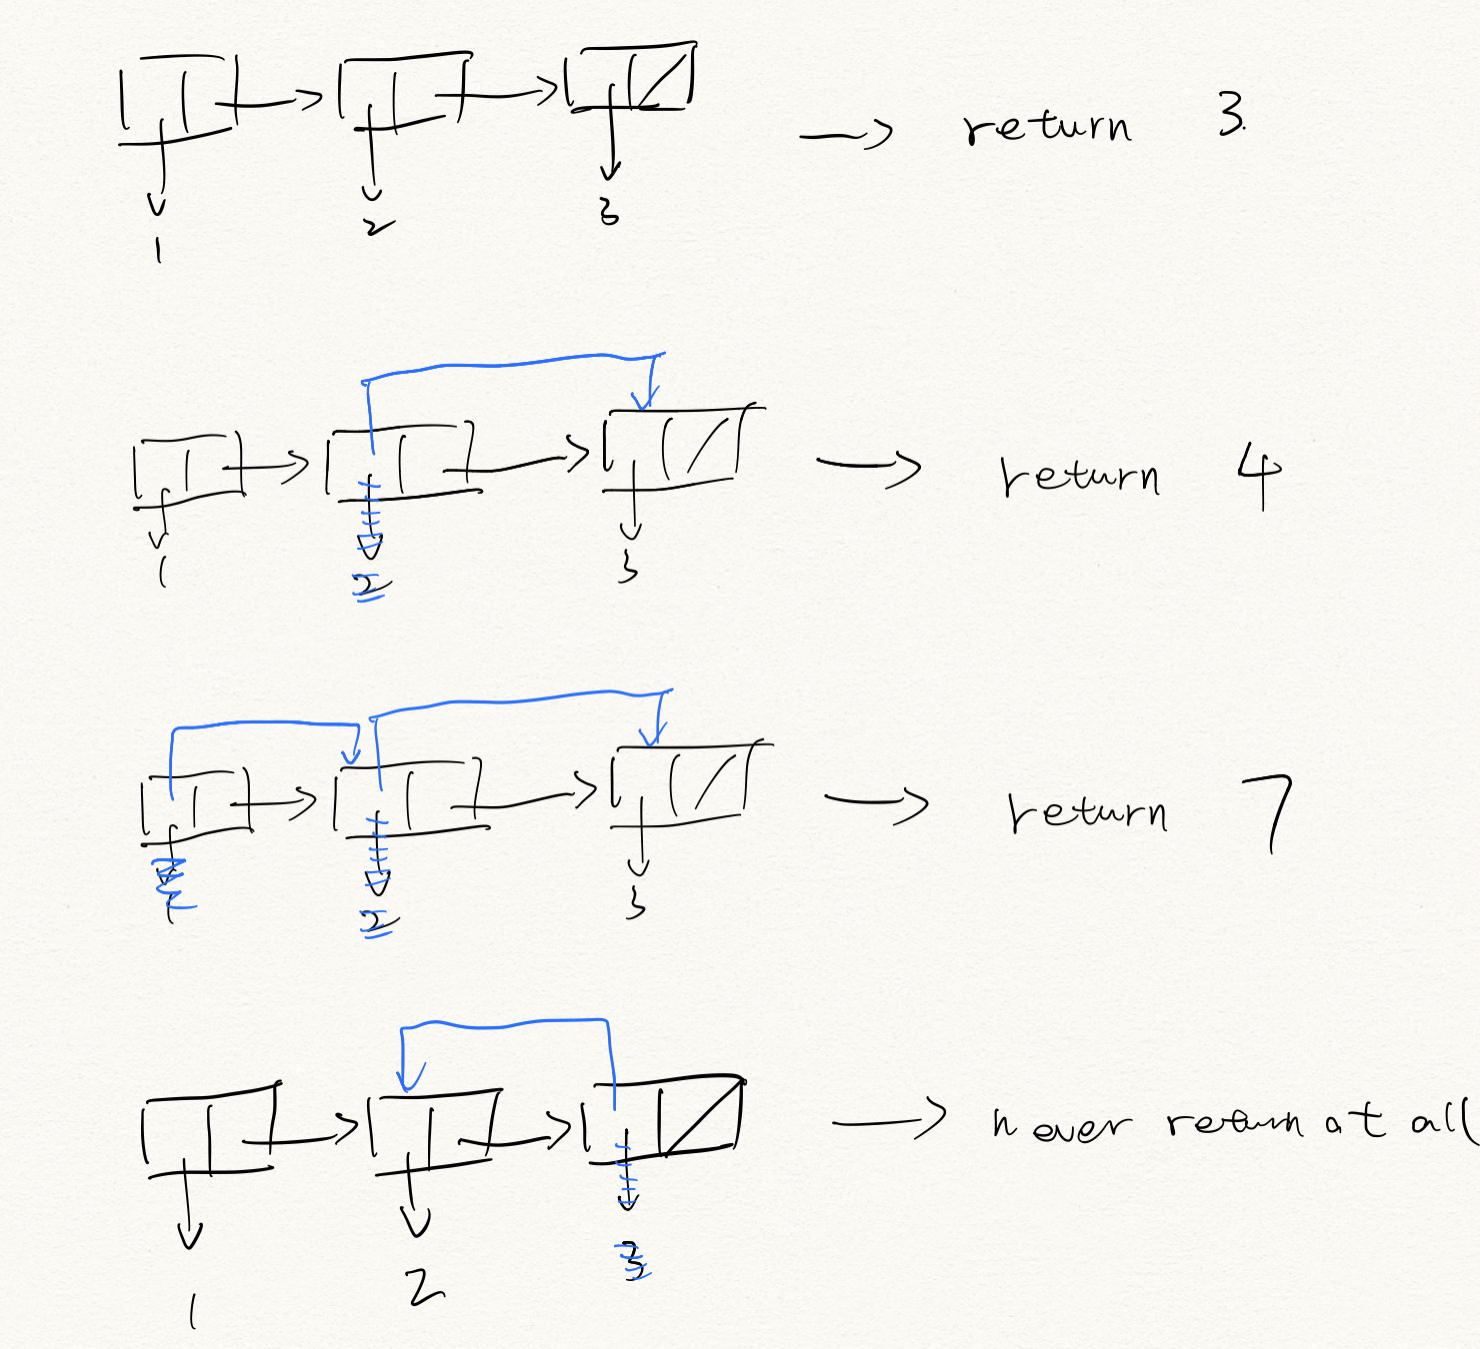 return 3
1 2 3
return 4
1 2 3
return 7
1 2 3
never return at all
1 2 3